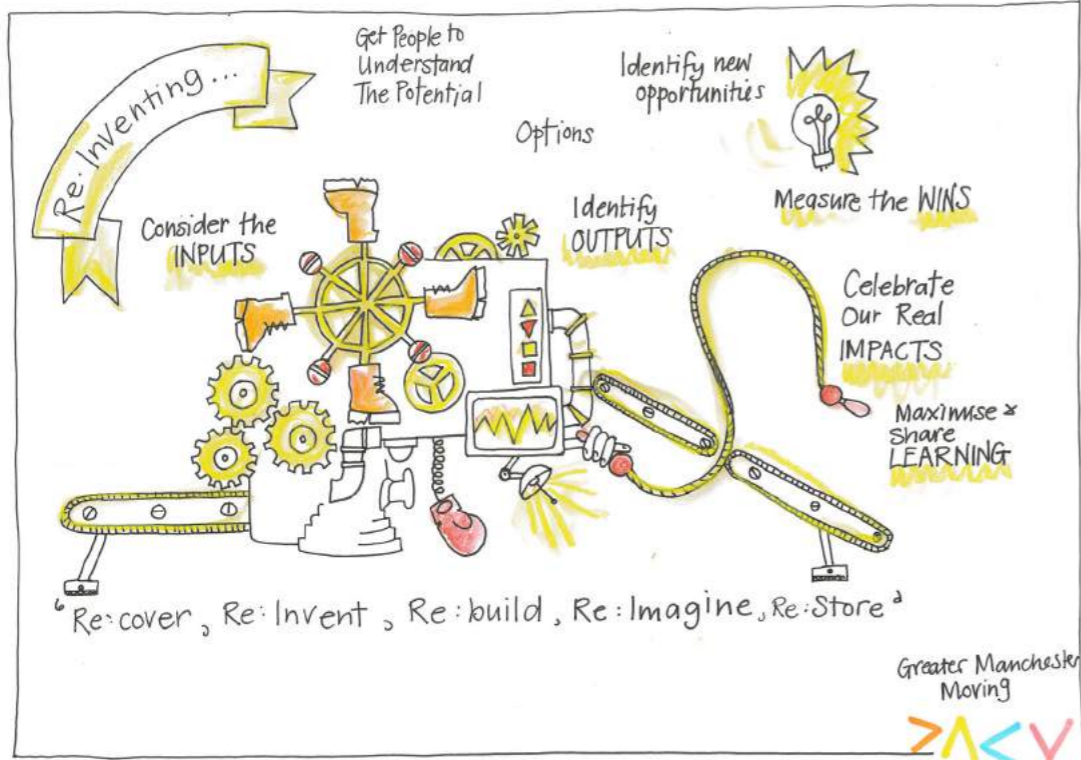 Re:Inventing...
Get People to
Understand
The Potential
Identify new
opportunities
Options
Consider the
INPUTS
Identify
OUTPUTS
Measure the WINS
Celebrate
Our Real
IMPACTS
Maximise &
Share
LEARNING
‘Re:cover, Re:Invent, Re:build, Re:Imagine, Re:Store’
Greater Manchester
Moving